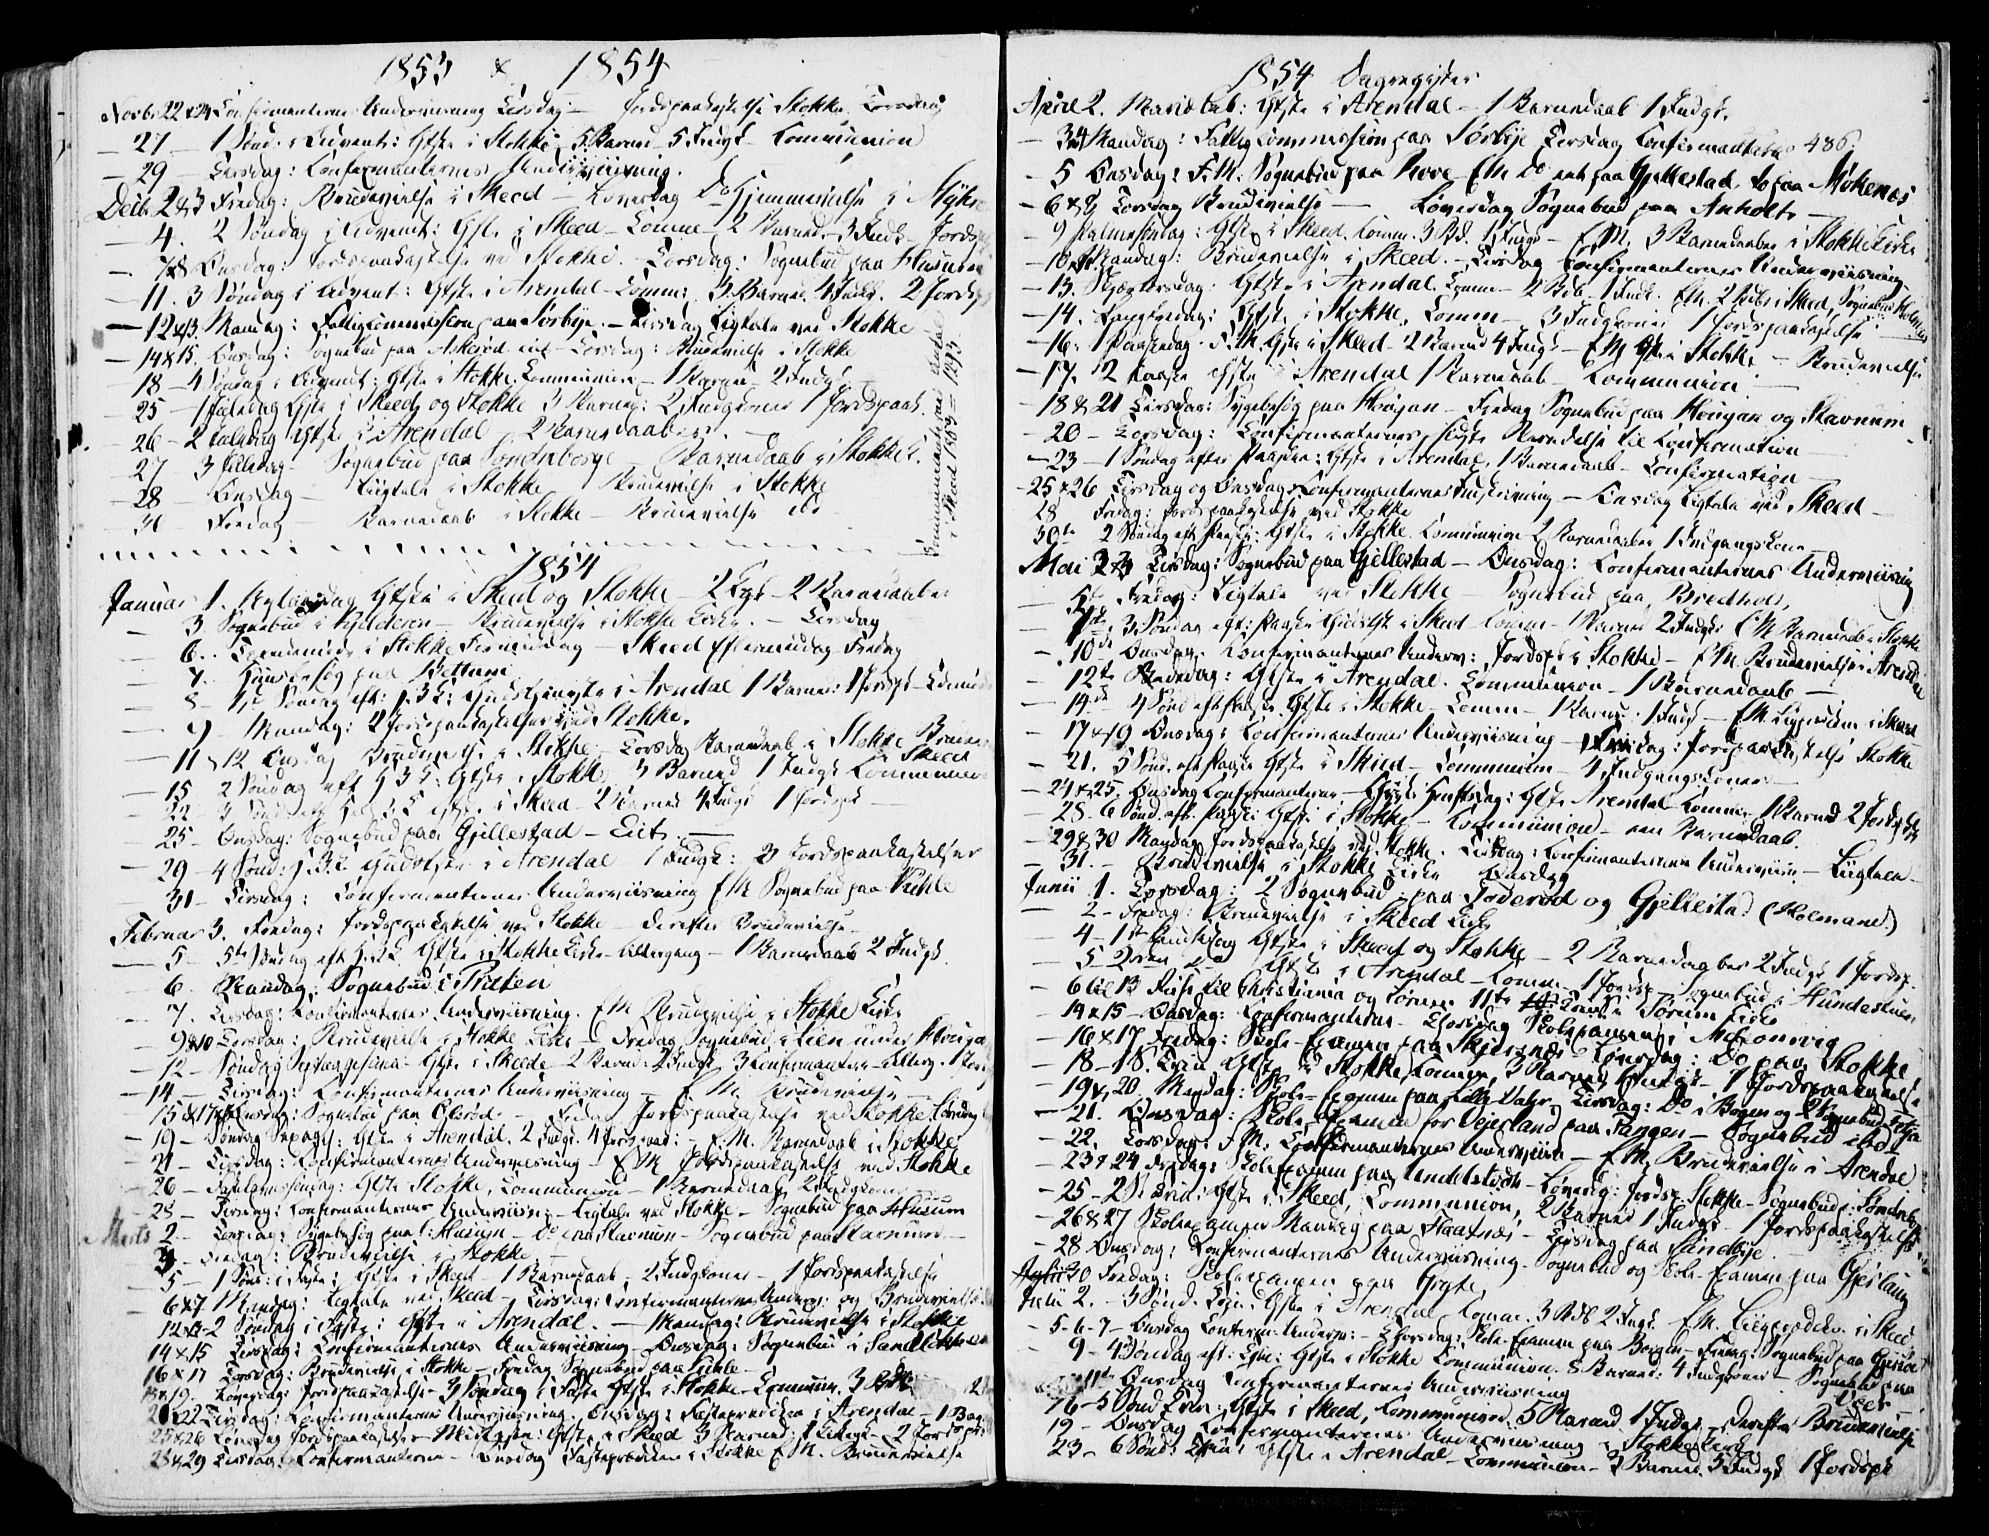 1853 & 1854
Novbr 22 & 24 Confirmanternes Underviisning Tirsdag – Jordspaakastelse Stokke Torsdag
— 27 – 1 Sønd. i Advent: Gtste i Stokke – 5 Barned 5 Indgk – Communion
— 29 – Tirsdag: Confirmanternes Underviisning.
Decb. 2&3 Fredag: Brudevielse i Skeed – Løverdag Do Hjemmevielse i
— 4. 2 Søndag i Advent: Gtste i Skeed – Comm – 2 Barned – 3 Indk –
— 7&8 Onsdag: Jordspaakastelse ved Stokke – Torsdag: Sognebud paa
— 11. 3 Søndag i Advent: Gtste i Arendal – Comm: 3 Barned. 4 Indk. 2 Jordsp
— 12&13. Mandag: Fattigcommission paa Sørbye. – Tirsdag Ligtale ved Stokke
— 14&15. Onsdag: Sognebud paa – Torsdag: Brudevielse i Stokke
18 – 4 Søndag i Advent: Gtste i Stokke. Communion – 1 Barned – 2 Indgk
25 – 1 Juledag Gtste i Skeed og Stokke 3 Barned: 2 Indgkoner 1 Jordspaak.
26 – 2 Juledag Gtste i Arendal – 2 Barnedaab
27 3 Juledag – Sognebud paa – Barnedaab i Stokke K.
28 Onsdag – Ligtale i Stokke – Brudevielse i Stokke
30 Fredag – Barnedaab i Stokke – Brudevielse do
Communicanternes Antal
i Skeed 1853 = 1293
1854
Januar 1. Nytaarsdag Gtste i Skeed og Stokke – 2 – 2 Barnedaaber
— 3 Sognebud i – Brudevielse i Stokke Kirke. – Tirsdag
— 6. i Stokke Formiddag – Skeed Eftermidag Fredag
— 7. Huusbesøg paa
— 8 – 1ste Søndag eft: H. 3 K: Gudstjeneste i Arendal 1 Barned: 1 Jordsp –
— 9 – Mandag: 2 Jordspaakastelser ved Stokke.
— 11 & 12 Onsdag Brudevielse i Stokke – Torsdag Barnedaab i Stokke
Skeed
— 15 2 Søndag eft H 3 K: Gtste i Stokke 3 Barned 1 Indgk Communion
22 – 3 Sønd eft H 3 K Gtste i Skeed – 2 Barned 4 Indgk 1 Jordspk –
25 – Onsdag: Sognebud paa Gjellestad – Eet. —
— 29 – 4 Sønd: H. 3 K Gudstjste i Arendal 1 Indgk: 2 Jordspaakastelser
— 31 – Tirsdag: Confirmanternes Underviisning EM Sognebud paa
Februar 3. Fredag: Jordspaakastelse ved Stokke – derefter Brudevielse
— 5 – 5te Søndag eft H. 3 K. Gtste i Stokke Kirke – Altergang – 1 Barnedaab 2 Indgk
— 6. Mandag: Sognebud i
— 7. Tirsdag: Confirmanternes Underviisning. EM Brudevielse i Stokke Kirke
— 9&10 Torsdag: Brudevielse i Stokke Kirke – Fredag Sognebud i Lien under
— 12 – Søndag Septuagesima: Gtste i Skeed – 2 Barned 2 Indgk 3 Confirmanter –
— 14 – Tirsdag: Confirmanternes Underviisning – E.M. Brudevielse
— 15 & 17 Onsdag: Sognebud paa – Fredag Jordspaakastelse ved Stokke
— 19 – Søndag Sexages: Gtste i Arendal. 2 Indgk. 4 Jordspaak: – E.M. Barnedaab i Stokke
— 21 – Tirsdag: Confirmanternes Underviisning – E.M. Jordspaakastelse ved Stokke
— 26 – Fastelavnssøndag: Gtste Stokke, Communion – 1 Barnedaab, 2 Indgkoner
— 28 – Tirsdag: Confirmanternes Underviisning – Ligtale ved Stokke – Sognebud paa Husum
Marts 2 – Torsdag: Sygebesøg paa Husum – Do paa Skavnum – Sognebud paa Skavnum
3 – Fredag: Brudevielse i Stokke —
— 5 – 1 Sønd: i Faste: Gtste i Skeed – 1 Barnedaab, 2 Indgkoner – 1 Jordspaakastelse
6&7 Mandag: Ligtale ved Skeed – Tirsdag: Confirmanternes Underv: og Brudevielse
12&13 – 2 Søndag i Faste: Gtste i Arendal. – Mandag: Brudevielse i Stokke
14 & 15 Tirsdag: Confirmanternes Underviisning – Onsdag: Sognebud i
16 & 17 Torsdag: Brudevielse i Stokke – Fredag Sognebud paa
18 & 19. Løverdag: Jordspaakastelse 3 Søndag i Faste Gtste i Stokke – Communion. 3
21&22 Tirsdag: Confirmanternes Underviisning. Onsdag: Fasteprædiken i Arendal – 1 Barn
25&26 Løverdag Jordspaakastelse – Midfaste: Gtste i Skeed 3 Barned: – 2 Jordsp
28&29 Tirsdag: Confirmanterne – Onsdag Fasteprædiken i Stokke E.M. Brudevielse
1854 Dagregister
April 2. Mariæ Beb: Gtste i Arendal – 1 Barnedaab 1 Indgk.
486.
— 3&4 Mandag: Fattigcommission paa Sørbye Tirsdag Confirmanterne
— 5 Onsdag: F.M. Sognebud paa Rove – EM Do eet paa Gjellestad, to paa Møkenæs
— 6 & 8 Torsdag Brudevielse — Løverdag Sognebud paa Anholt —
— 9 Palmesøndag: Gtste i Skeed. Comm. 3 Bd. 1 Indgk – E.M. 3 Barnedaaber i Stokke Kirke
— 10&11 Mandag: Brudevielse i Skeed. – Tirsdag Confirmanternes Underviisning
— 13. Skjærtorsdag: Gtste i Arendal. Comm – 2 Bdb. 1 Indk. EM. 2 Bdb i Skeed, Sognebud
— 14. Langfredag: Gtste i Stokke, Comm – 3 Indgkoner 1 Jordspaakastelse
— 16. 1 Paaskedag F.M. Gtste i Skeed – 2 Barned 4 Indgk – EM Gtste i Stokke – Brudevielse
— 17. 2 Paaske Gtste Arendal 1 Barnedaab – Kommunion —
— 18 & 21 Tirsdag: Sygebesøg paa Hougan – Fredag Sognebud paa Hougan og Skavnum
— 20 – Torsdag: Confirmanternes sidste Beredelse til Confirmation —
— 23 – 1 Søndag efter Paaske: Gtste i Arendal, 1 Barnedaab – Confirmation —
— 25 & 26 Tirsdag og Onsdag: Confirmanternes Indskrivning – Onsdag Ligtale ved Skeed —
28 Fredag: Jordspaakastelse ved Stokke
30te 2 Søndag eft Paaske: Gtste i Stokke. Communion 2 Barnedaaber 1 Indgangskone
Mai 2&3 Tirsdag: Sognebud paa Gjellestad – Onsdag: Confirmanternes Underviisning
— 5te Fredag: Ligtale ved Stokke – Sognebud paa Bredholt,
— 7de 3 Søndag eft: Paaske Gudstste i Skeed Comm – Barned 2 Indgk: EM Barnedaab i Stokke
— 10de Onsdag: Confirmanternes Underv: Jordsp: i Stokke – EM. Brudevielse i Arendal
— 12te Bededag: Gtste i Arendal. Communion – 1 Barnedaab —
— 14de 4 Sønd eft Paaske Gtste i Stokke – Comm – 1 Barned 1 Indgk – EM i Skeed
— 17&19 Onsdag: Confirmanternes Underviisning – Fredag: Jordspaakastelse Stokke
— 21. 5 Sønd. eft Paaske Gtste i Skeed – Communion – 4 Indgangskoner —
— 24&25. Onsdag Confirmanterne – Christi Himfartsdag: Gtste Arendal Comm. 1 Barned 2 Jordspk
— 28. 6 Sønd. eft. Paaske: Gtste i Stokke – Communion – een Barnedaab.
— 29&30 Mandag Jordspaakastelse ved Stokke. Tirsdag: Confirmanternes Underviisn. – Liigtale
— 31. – Brudevielse i Stokke Kirke Onsdag
Junii 1. Torsdag: 2 Sognebud: paa Foderød og Gjellestad (Holmane.)
— 2 – Fredag: Brudevielse i Skeed Kirke
— 4 – 1ste Pintsedag Gtste i Skeed og Stokke – 2 Barnedaaber 2 Indgk 1 Jordsp.
— 5 – 2den Do Gtste i Arendal – Comm. 1 Jordsp – Sognebud i Hundestuen
— 6 til 13 Reise til Christiania og Sørum 11te i Sørum Kirke
— 14&15 – Onsdag: Confirmanterne – Thorsdag Skoleexamen i Melsomvig
— 16&17 Fredag: Skole-Examen paa Skjersnæs – Løverdag: Do paa Stokke
— 18 – 1 S. Trin Gtste i Stokke, Comm, 3 Barned 1 Indgk – 1 Jordspaakastelse
— 19 & 20. Mandag: Skole-Examen paa Lille Valøe Tirsdag: Do i Bogen og Sognebud
— 21. Onsdag: Skole-Examen for Vejerland paa Tangen – Sognebud ibd
— 22. Torsdag: F.M. Confirmanternes Underviisn – EM. Brudevielse i Arendal
— 23 & 24 Fredag: Skoleexamen paa Unnelstveth – Løverdag: Jordsp Stokke – Sognebud i
— 25 – 2 S. Trin: Gtste i Skeed, Communion, 2 Barned 1 Indgk – 1 Jordspaakastelse
— 26&27 Skoleexamen Mandag paa Haasnæs – Tirsdag paa Sandbye.
— 28 Onsdag: Confirmanternes Underviisning – Sognebud og Skole-Examen paa
30 Fredag: Skoleexamen paa Gryte,
Julii 2. – 3 Sønd. Trin. Gtste i Arendal, Comm. 3 Bdb 2 Indgk. E.M. i Skeed
— 5 – 6 – 7 – Onsdag Conferm. Underv: – Thorsdag: Skole-Examen paa Borgen – Fredag: Sognebud paa
— 9 – 4 Søndag eft. Trin: Gtste i Stokke Communion. 8 Barned. 4 Indgkoner – Sognebud paa
— 11te Onsdag Confirmanternes Underviisning
16 – 5 Sønd Trin: Gtste i Skeed, Communion 5 Barned 1 Indgk – derefter Brudevielse
19 – Onsdag Confermanternes Underviisning i Stokke Kirke
23 – 6 Sønd. Trin: Gtste i Arendal – Communion – 3 Barned. 5 Indgk 1 Jordspk